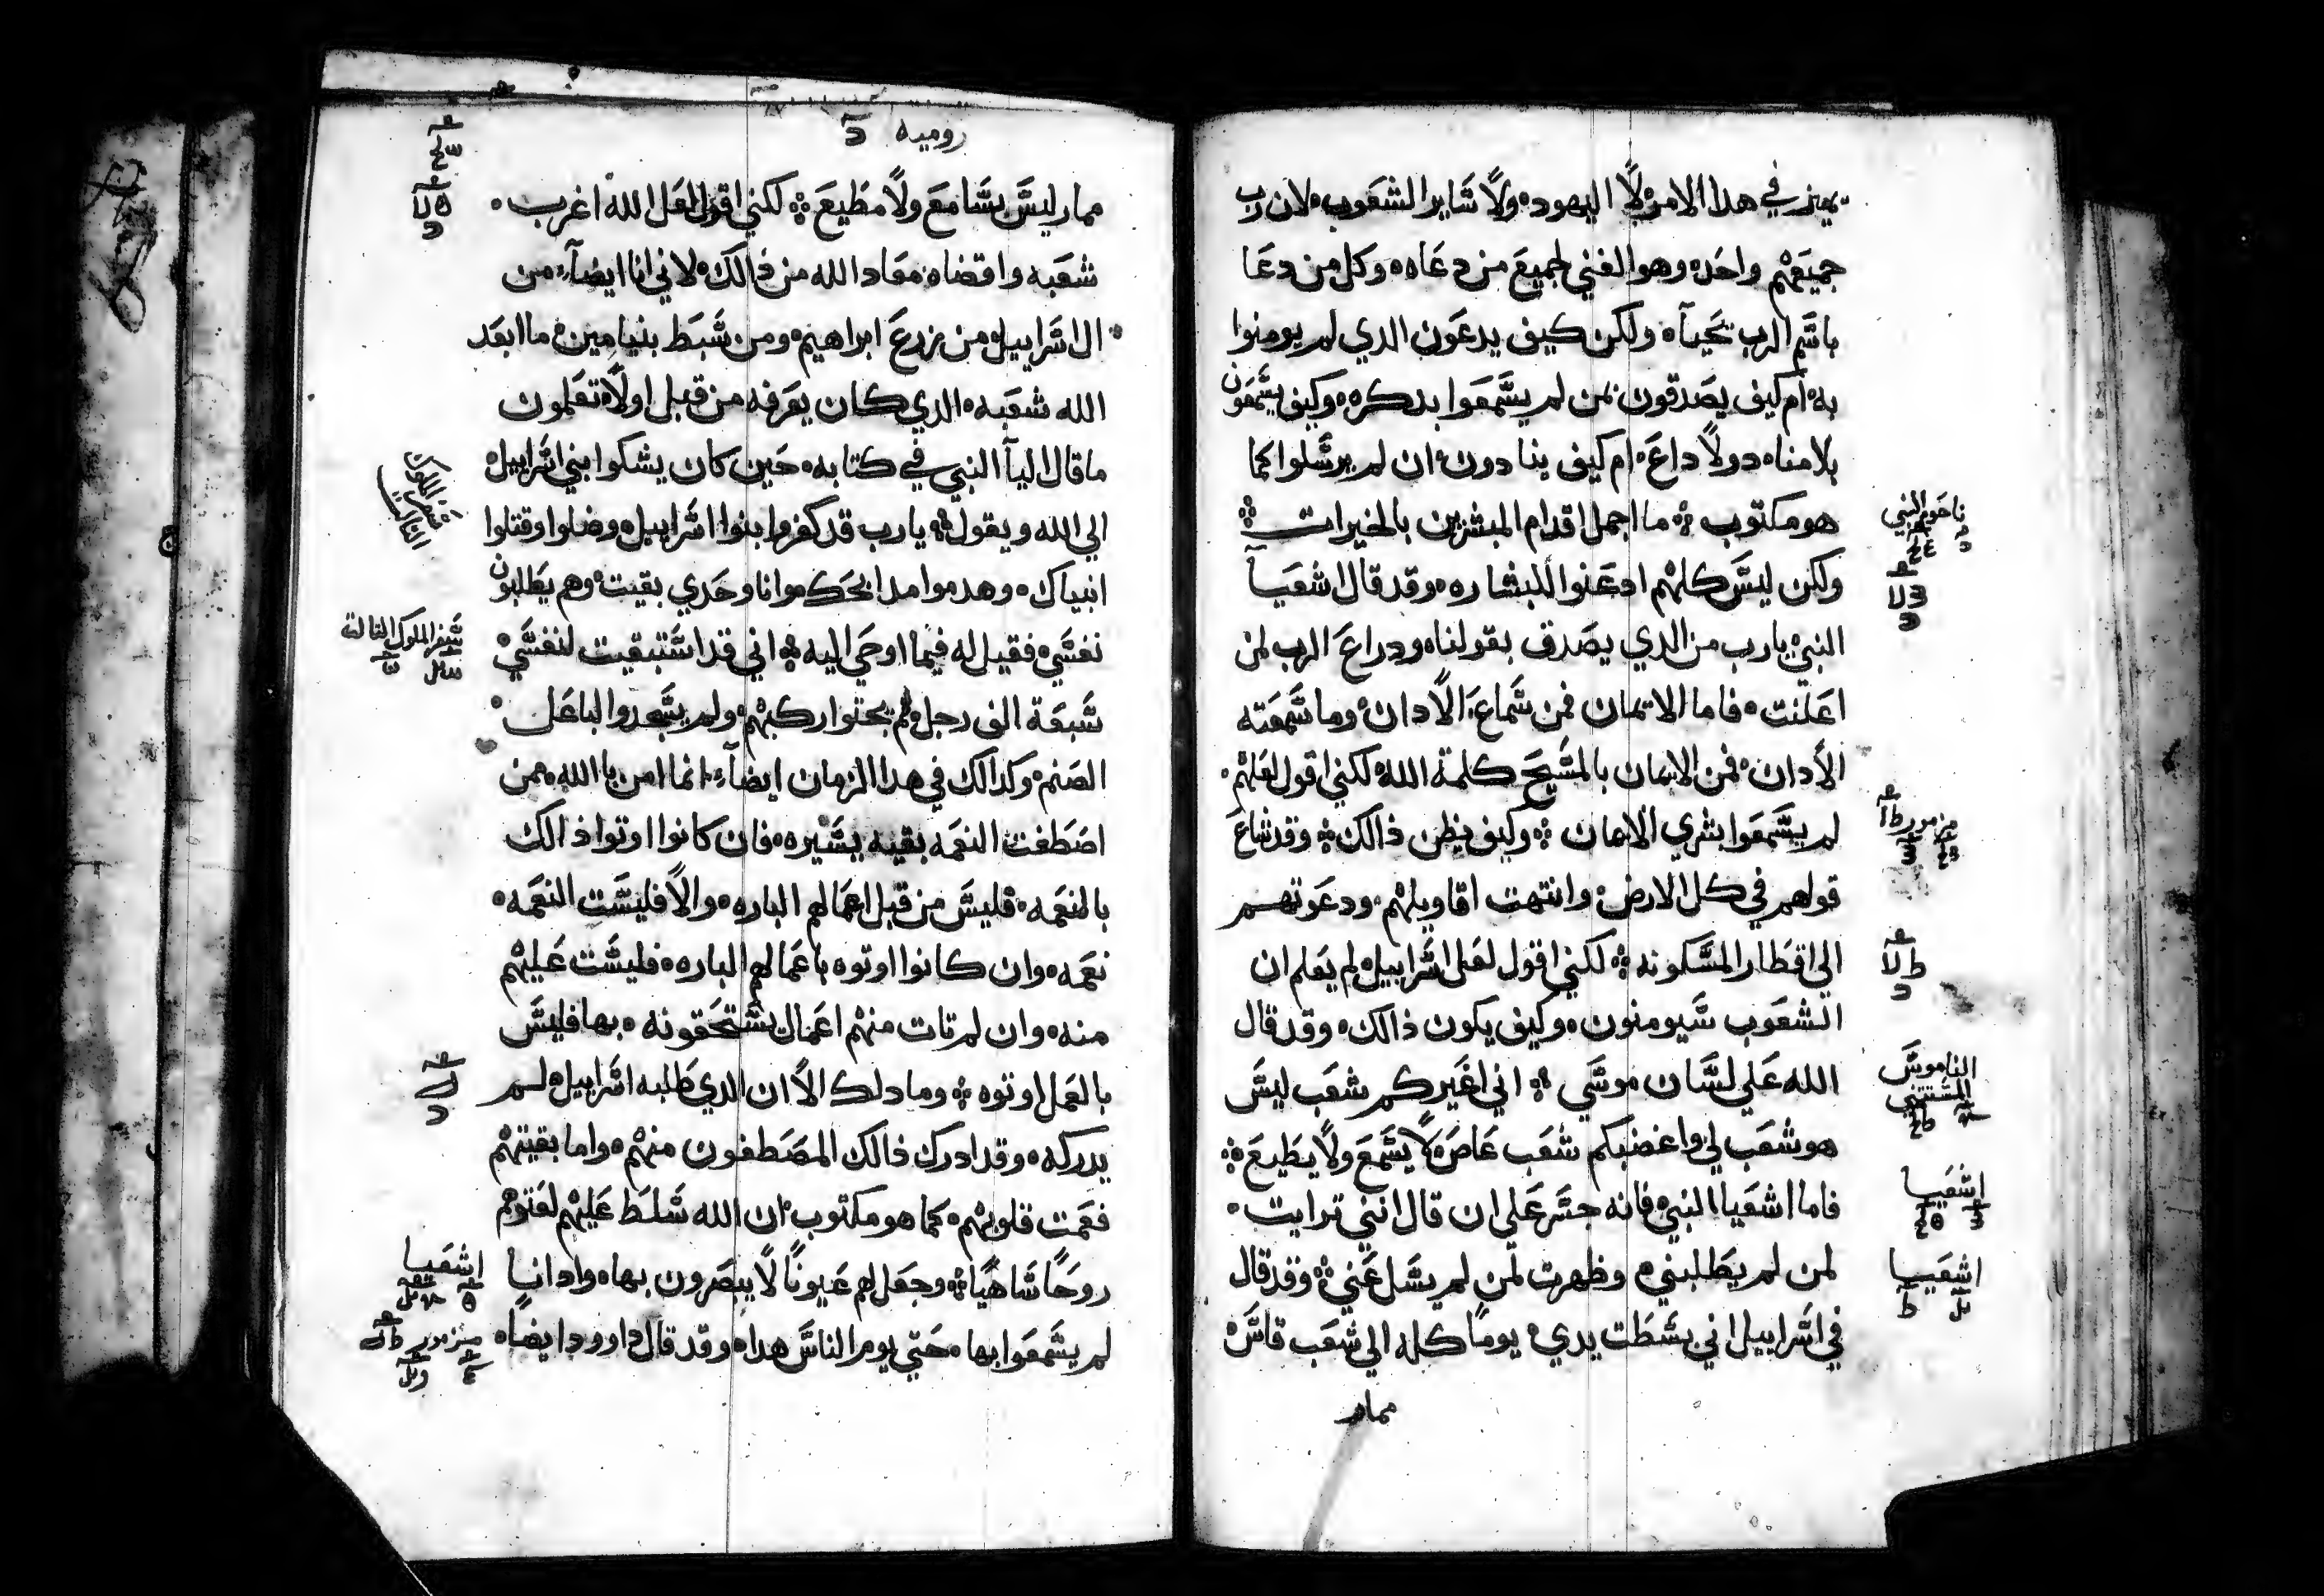 يميز في هدا الامر لا اليهود ولا ساير الشعوب لان رب
جميعهم واحد وهو الغني لجميع من دعاه وكل من دعا
باسم الرب يحيا ولكن كيف يدعون الدي لم يومنوا
به ام كيف يصدقون بمن لم يسمعوا بدكره وكيف يسمعون
بلا مناد ولا داع ام كيف ينادون ان لم يرسلوا كما
هو مكتوب ما اجمل اقدام المبشرين بالخيرات
ولكن ليس كلهم ادعنوا للبشاره وقد قال اشعيا
النبي يارب من الدي يصدق بقولنا ودراع الرب لمن
اعلنت فاما الايمان فمن سماع الادان وما سمعته
الادان فمن الايمان بالمسيح كلمة الله لكني اقول لعلهم
لم يسمعوا بشري الايمان وكيف يظن ذالك وقد شاع
قولهم في كل الارض وانتهت اقاويلهم ودعوتهم
الي اقطار المسكونه لكني اقول لعل اسراييل لم يعلم ان
الشعوب سيومنون وكيف يكون ذالك وقد قال
الله علي لسان موسي اني اغيركم شعب ليس
هو شعب لي واغضبكم شعب عاص لا يسمع ولا يطيع
فاما اشعيا النبي فانه جسر علي ان قال انني ترايت
لمن لم يطلبني وظهرت لمن لم يسل عني وقد قال
في اسراييل اني بسطت يدي يوما كله الي شعب قاس
ممار
ناحوم النبي
مزمور
الناموس
اشعيا
اشعيا
روميه
ممار ليس بسامع ولا مطيع لكني اقول لعل الله اغرب
شعبه واقضاه معاد الله من ذالك لاني انا ايضا من
ال اسراييل من زرع ابراهيم ومن سبط بنيامين ما ابعد
الله شعبه الدي كان يعرفه من قبل اولا تعلمون
ما قال اليا النبي في كتابه حين كان يشكوا بني اسراييل
الي الله ويقول يارب قد كفروا بنوا اسراييل وضلوا وقتلوا
انبياك وهدموا مدابحك وانا وحدي بقيت وهم يطلبون
نفسي فقيل له فيما اوحي اليه اني قد استبقيت لنفسي
سبعة الف رجل لم يجتوا ركبهم ولم يسجدوا لباعل
الصنم وكدالك في هدا الزمان ايضا انما امن بالله ممن
اصطفت النعمه بقيه يسيره فان كانوا اوتوا ذالك
بالنعمه فليس من قبل اعمالهم الباره والا فليست النعمه
نعمه وان كانوا اوتوه باعمالهم الباره فليست عليهم
منه وان لم تات منهم اعمال يستحقونه بها فليس
بالعمل اوتوه وما دلك الا ان الدي طلبه اسراييل لم
يدركه وقد ادرك ذالك المصطفون منهم واما بقيتهم
فعمت قلوبهم كما هو مكتوب ان الله سلط عليهم لعتوهم
روحا ساهيا وجعل لهم عيونا لا يبصرون بها وادانا
لم يسمعوا بها حتي يوم الناس هدا وقد قال داوود ايضا
سفر الملوك الثالث
سفر الملوك الثالث
اشعيا
مزمور